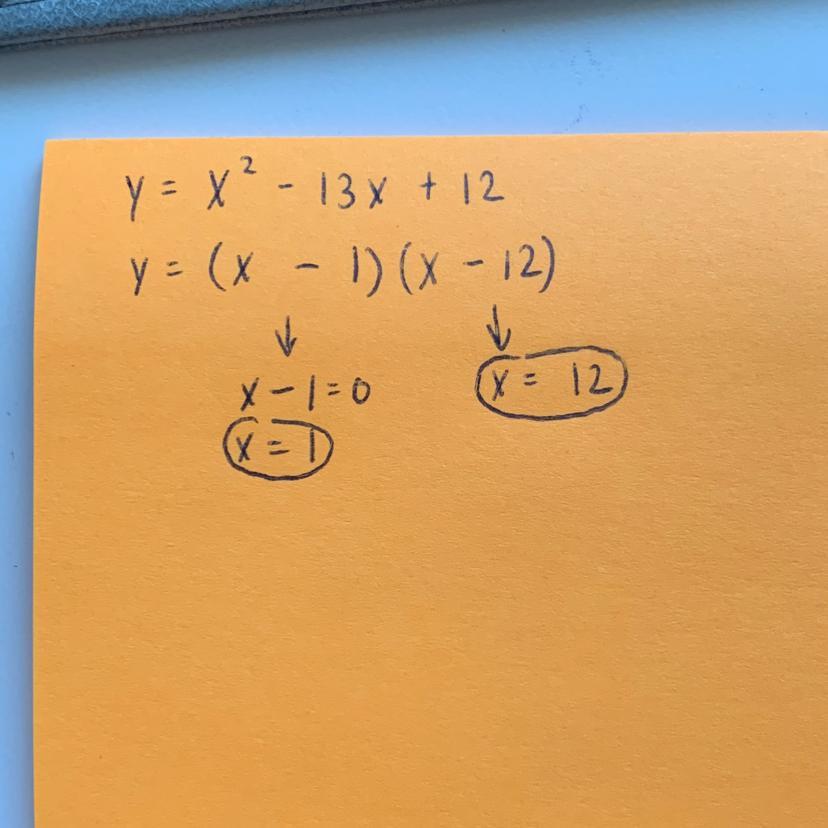 y = x² - 13x + 12
y = (x - 1)(x - 12)
↓ ↓
x - 1 = 0 x = 12
x = 1